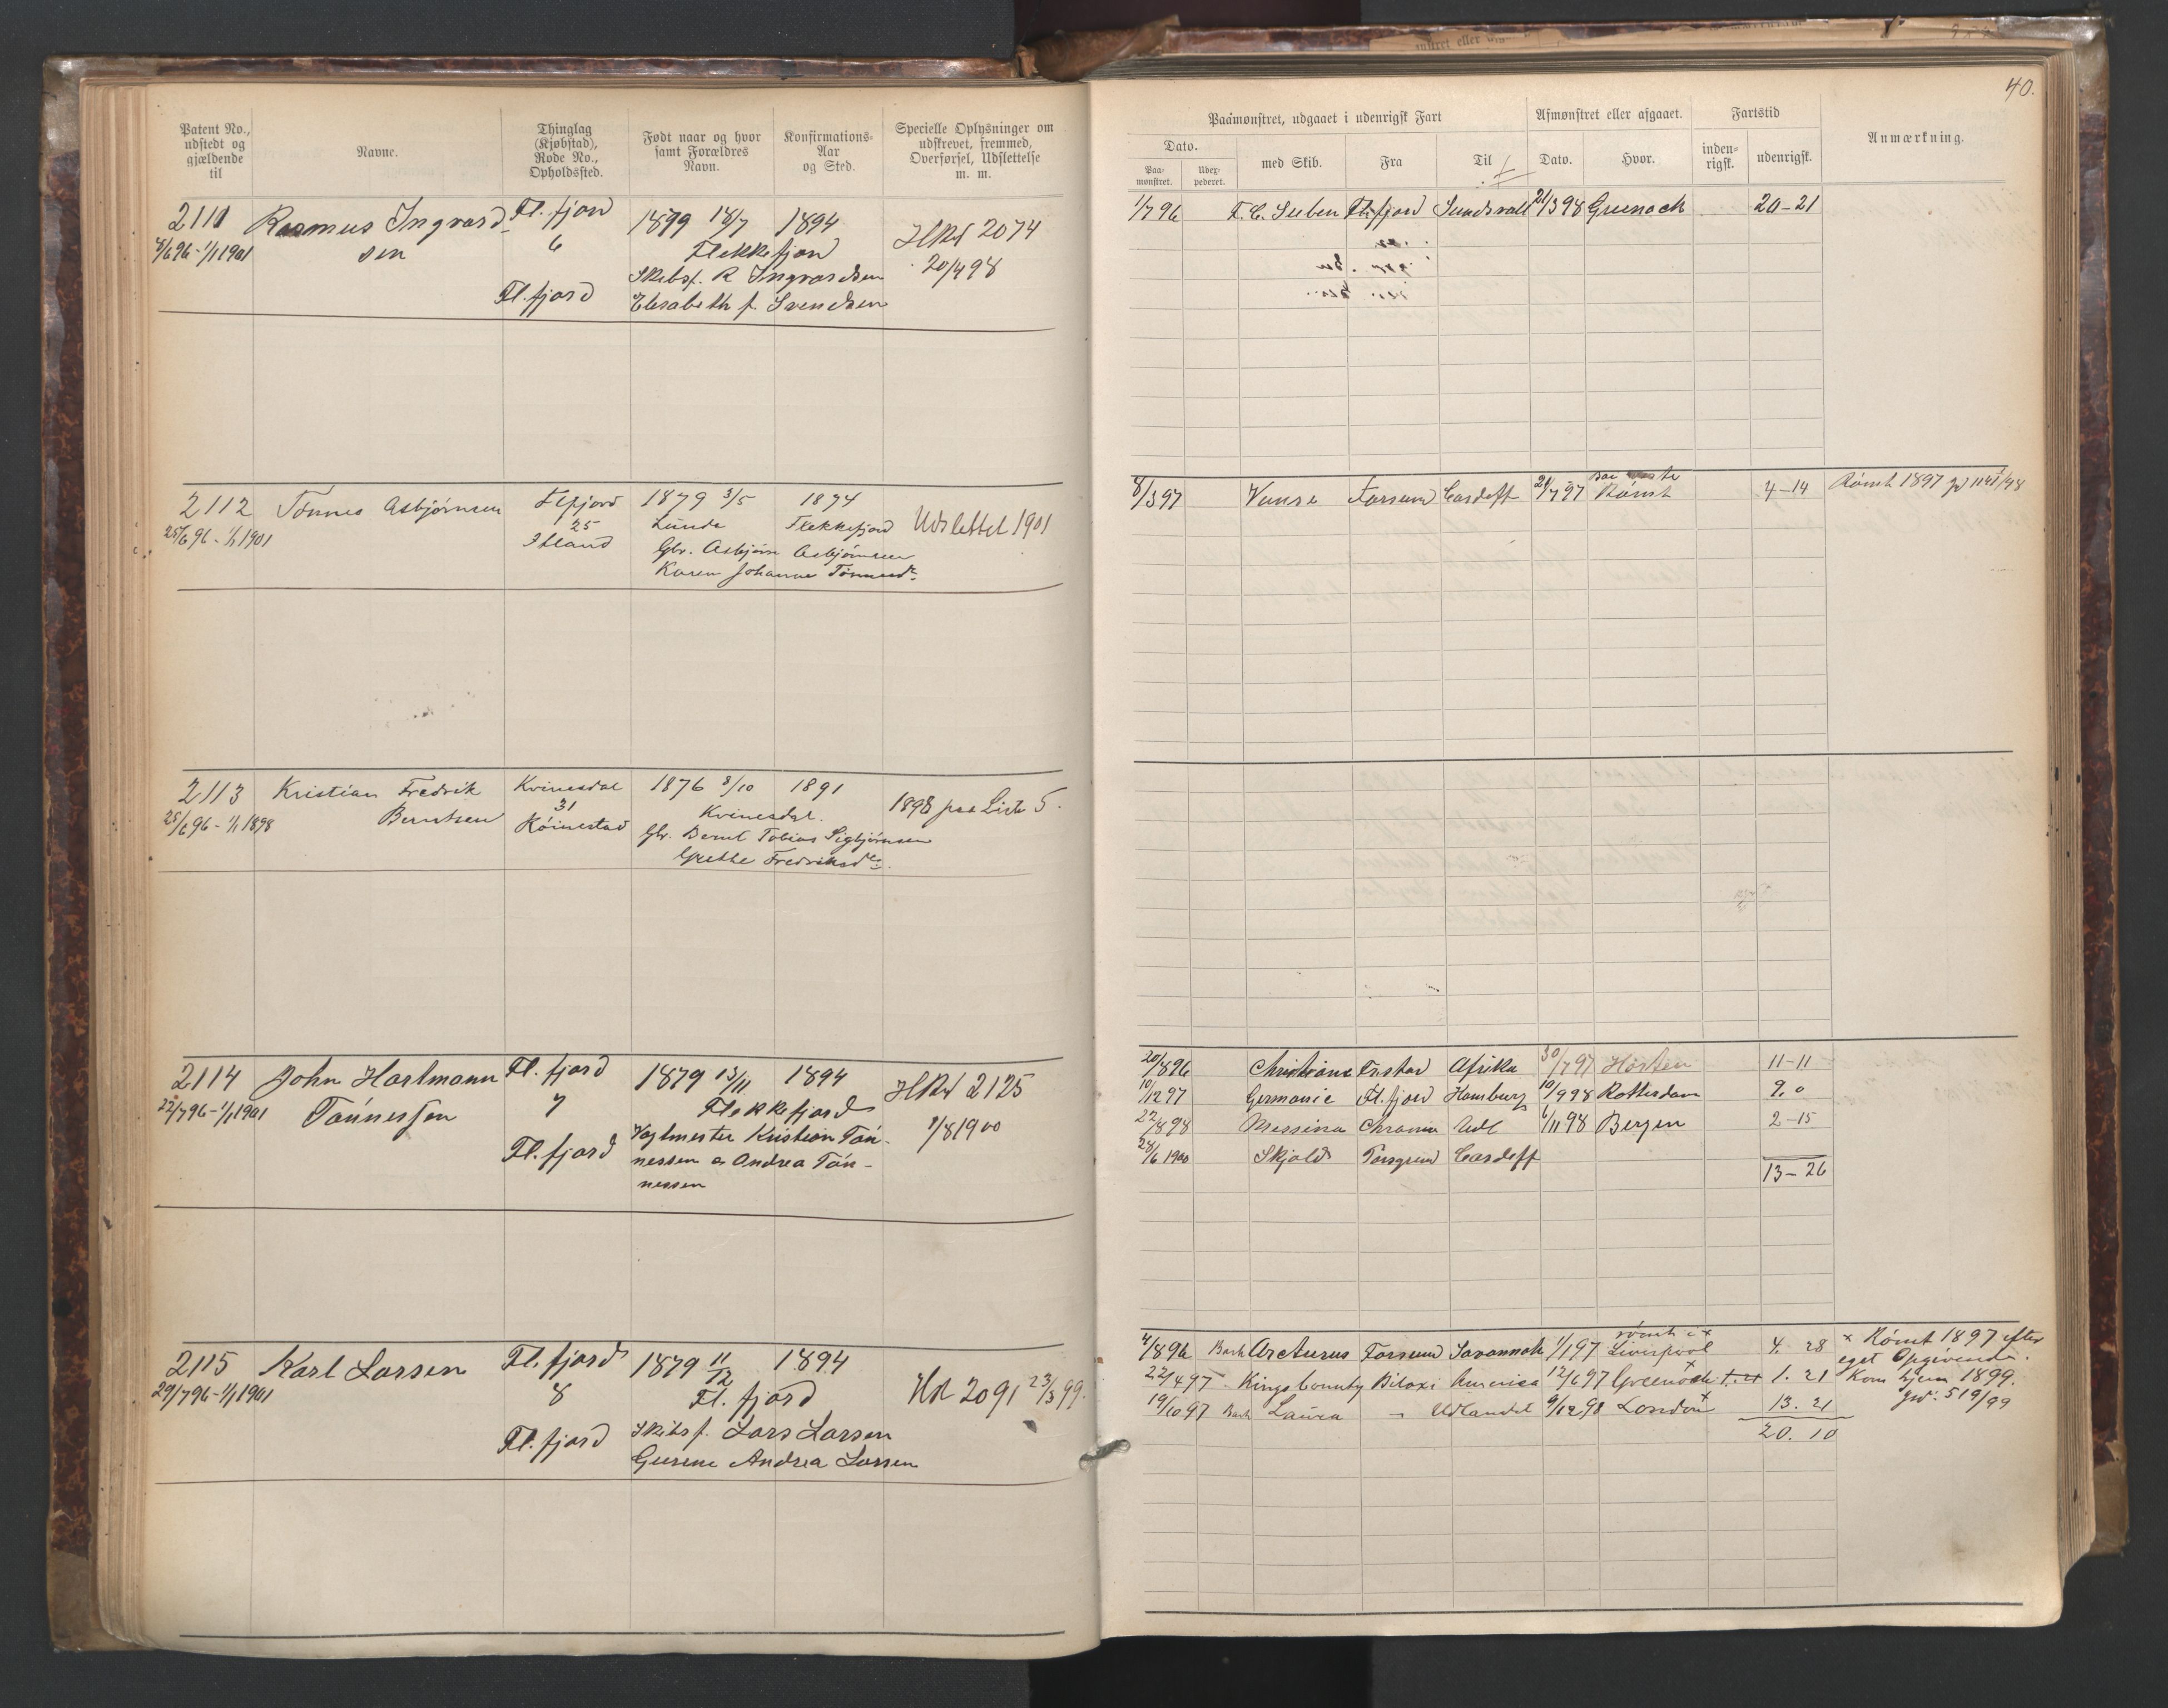 40.
Patent No., udstedt og gjældende til
Navne.
Thinglag (Kjøbstad), Rode No., Opholdssted.
Født naar og hvor samt Forældres Navn.
Konfirmations-Aar og Sted.
Specielle Oplysninger om udskrevet, fremmed, Overførsel, Udslettelse m. m.
Paamønstret, udgaaet i udenrigsk Fart
Dato.
Paa-mønstret.
Udex-pederet.
med Skib.
Fra
Til
Afmønstret eller afgaaet.
Dato.
Hvor.
Fartstid
inden-rigsk.
udenrigsk.
Anmærkning.
2111 Rasmus Ingvard- Fl. fjord 1879 18/7 1894 HRd 2074
8/6 96 - 1/1 1901 sen 6 Flekkefjord 20/4 98
Skibsf. R Ingvardsen
Fl. fjord Elisabeth f. Svendsen
1/7 96 F. C. Sieben Fl. fjord Sundsvall 21/3 98 Greenock 20-21
2112 Tønnes Asbjørnsen Flfjord 1879 3/5 1894 Udslettet 1901
25/6 96 - 1/1 1901 25 Lunde Flekkefjord
Gbr. Asbjørn Asbjørnsen
Karen Johanne Tønnesdr.
8/3 97 Vanse Farsund Cardeff 21/7 97 Rømt 4-14 Rømt 1897
2113 Kristian Fredrik Kvinesdal 1876 8/10 1891 1898 paa Liste 5.
25/6 96 - 1/1 1898 Berntsen 31 Kvinesdal.
Røinestad Gbr. Bernt Tobias Sigbjørnsen
Grethe Fredriksdr.
2114 John Hartmann Fl. fjord 1879 13/11 1894 HRd 2125
22/7 96 - 1/1 1901 Tønnessen 7 Flekkefjord 1/8 1900
Fl. fjord Vagtmester Kristian Tøn-
nessen og Andrea Tøn-
nessen
20/8 96 Christiane Fr.stad Afrika 30/7 97 Horten 11-11
10/12 97 Germanic Fl. fjord Hamburg 10/9 98 Rotterdam 9.0
22/8 98 Messina Chrania Udl 6/11 98 Bergen 2-15
28/6 1900 Skjold Porsgrund Cardeff
13-26
2115 Karl Larsen Fl. fjord 1879 11/12 1894 HRd 2091 23/3 99.
29/7 96 - 1/1 1901 8 Fl. fjord
Fl. fjord Skibsf. Lars Larsen
Gurine Andrea Larsen
4/8 96 Bark Arcturus Farsund Savannah 1/1 97 rømt i x Liverpool 4. 28 x Rømt 1897 efter
22/4 97 Kings County Biloxi America 12/6 97 Greenock 1. 21 eget Opgivende.
19/10 97 Bark Laura - Udlandet 9/12 98 London 13. 21 Kom hjem 1899.
20. 10 Jrd. 519/99